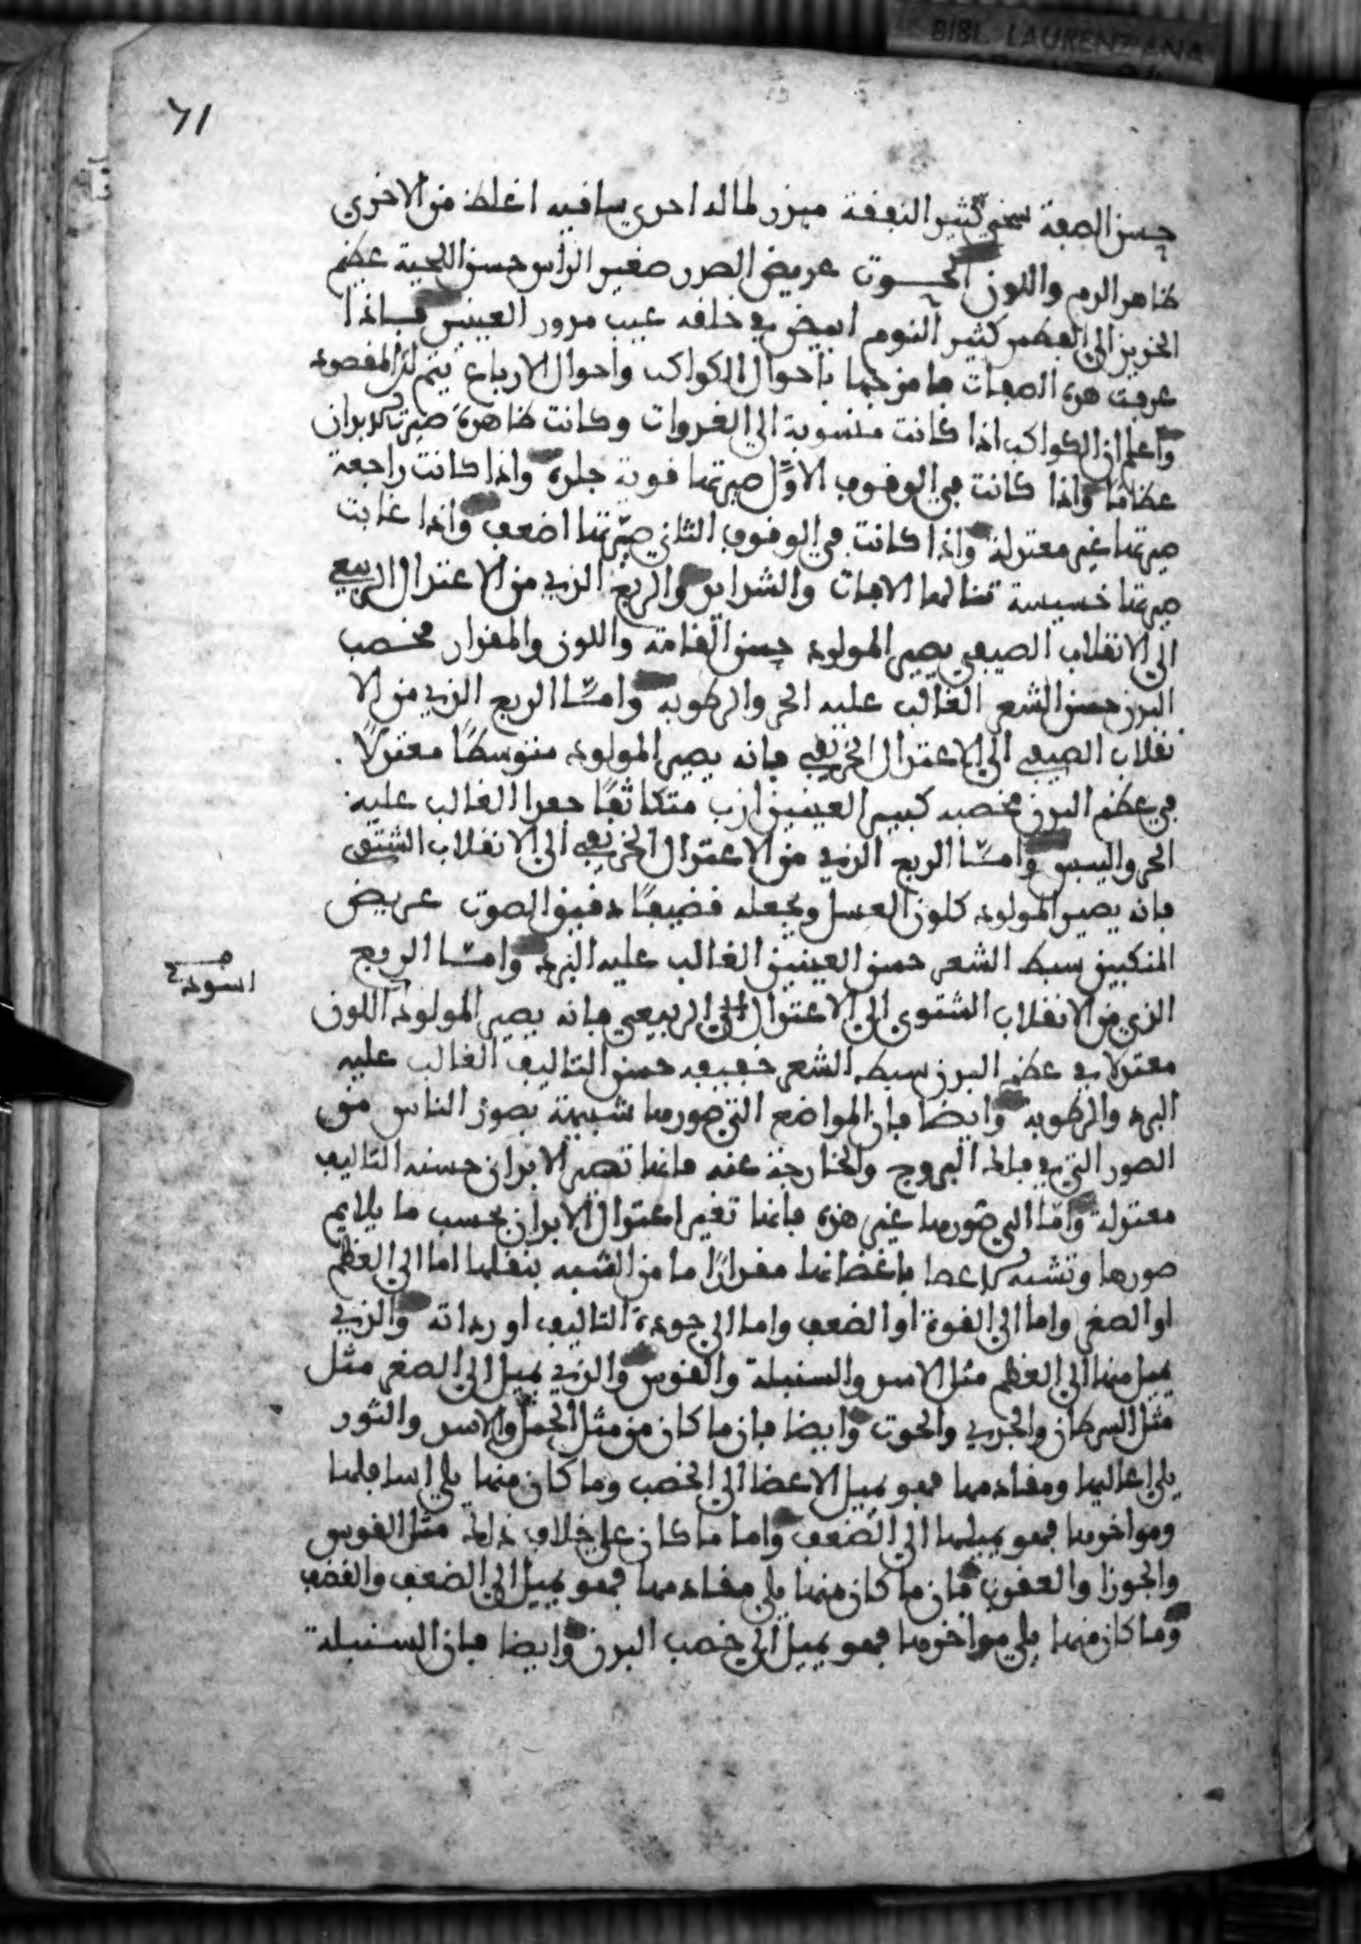 BIBL. LAURENZIANA
71
حسن الصفة سخي كثير النفقة مبزر لماله احدى ساقيه اغلظ من الاخرى
ظاهر الدم واللون الحــوت عريض الصدر صغير الراس حسن اللحية عظيم
كثير النوم ابيض في خلقه عيب مدور العينين فاذا
عرفت هذه الصفات فامزجها باحوال الكواكب واحوال الارباع يتم لك المقصود
واعلم ان الكواكب اذا كانت منسوبة الى الغدوات وكانت ظاهرة صيرت الابدان
عظاما واذا كانت في الوقوف الاول صيرتها قوية جلدة واذا كانت راجعة
صيرتها غير معتدلة واذا كانت في الوقوف الثاني صيّرتها اضعف واذا غابت
صيرتها خسيسة تنالها الافات والشدايد والربع الذي من الاعتدال الربيعي
الى الانقلاب الصيفي يصير المولود حسن القامة واللون والمقدار مخصب
البدن حسن الشعر الغالب عليه الحر والرطوبه وامّا الربع الذي من الا
نقلاب الصيفي الى الاعتدال الخريفي فانه يصير المولود متوسطًا معتدلًا
في عظم البدن مخصبه كبير العينين ازب متكاثفًا جعدا الغالب عليه
الحر واليبس وامّا الربع الذي من الاعتدال الخريفي الى الانقلاب الشتوي
فانه يصير المولود كلون العسل ويجعله قضيفًا دقيق الصوت عريض
المنكبين سبط الشعر حسن العينين الغالب عليه البرد وامّا الربع
الذي من الانقلاب الشتوي الى الاعتدال الربيعي فانه يصير المولود اللون
اسود
معتدلا في عظم البدن سبط الشعر خفيفه حسن التاليف الغالب عليه
البرد والرطوبه وايضا فان المواضع التي صورها شبيهة بصور الناس من
الصور التي في فلك البروج والخارجة عنه فانها تصير الابدان حسنه التاليف
معتدلة وامّا التي صورها غير هذه فانها تغير اعتدال الابدان بحسب ما يلايم
صورها وتشبه الاعضا باعضائها مقدارًا ما من الشبه بنقلها اما الى العظم
او الصغر واما الى القوة او الضعف واما الى جودة التاليف او رداته والذي
يميل منها الى العظم مثل الاسد والسنبلة والقوس والذي يميل الى الصغر مثل
مثل السرطان والجدي والحوت وايضا فان ما كان من مثل الحمل والاسد والثور
يلي اعاليها ومقادمها فهو يميل الاعضا الى الخصب وما كان منها يلي اسافلها
ومواخرها فهو يميلها الى الضعف واما ما كان على خلاف ذلك مثل القوس
والجوزا والعقرب فان ما كان منها يلي مقادمها فهو يميل الى الضعف والقضف
وما كان منها يلي مواخرها فهو يميل الى خصب البدن وايضا فان السنبلة